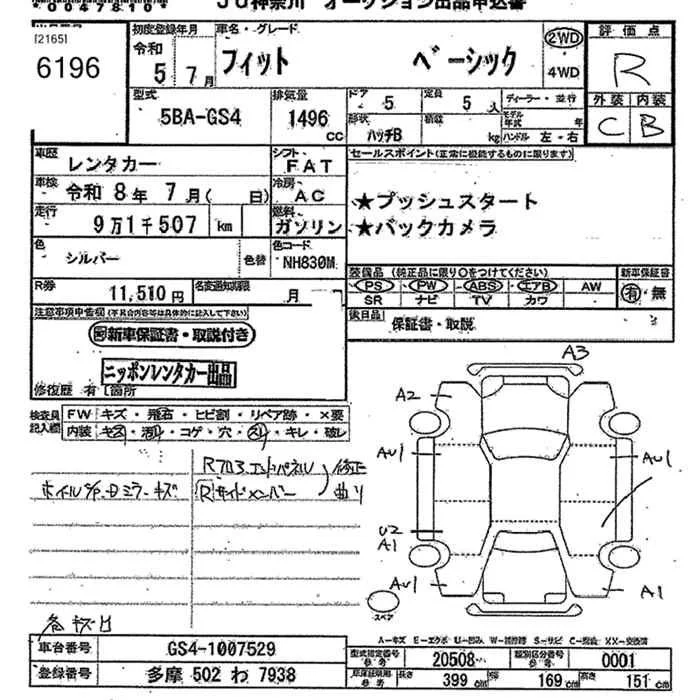 0047810
JU神奈川 オークション出品申込書
[2165]
6196
初度登録年月
令和
5 7月
車名・グレード
フィット ベーシック
2WD
4WD
評価点
R
外装 内装
C B
型式
5BA-GS4
排気量
1496 cc
ドア 5
定員 5 人
ディーラー・並行
形状 ハッチB
積載 kg
モデル年式 年
ハンドル 左・右
車歴 レンタカー
シフト FAT
車検 令和 8年 7月( 日)
冷房 AC
走行 9万1千507 km
燃料 ガソリン
色 シルバー 色替
色コード NH830M
セールスポイント(正常に機能するものに限ります)
★プッシュスタート
★バックカメラ
R券 11,510円
名変通知期限 月
装備品(純正品に限り○をつけてください)
PS PW ABS エアB AW
SR ナビ TV カワ
新車保証書
有・無
後日品 保証書・取説
注意事項申告欄(不具合内容等は具体的に記入して下さい)
新車保証書・取説付き
ニッポンレンタカー出品
修復歴 有 [箇所
検査員記入欄
FW キズ・飛石・ヒビ割・リペア跡・×要
内装 キズ・汚れ・コゲ・穴・スレ・キレ・破レ
Rフロスエンドパネル 修正
ホイルキャップ・Dミラーキズ
Rサイドメンバー 曲り
各キズ凹
A3
A2
AU1
AU1
U2
A1
AU1
A1
スペア
A-キズ E-エクボ U-凹み W-補修跡 S-サビ C-腐蝕 XX-交換済
車台番号 GS4-1007529
登録番号 多摩 502 わ 7938
型式指定番号 参考 20508
類別区分番号 参考 0001
長さ 399 cm
幅 169 cm
高さ 151 cm